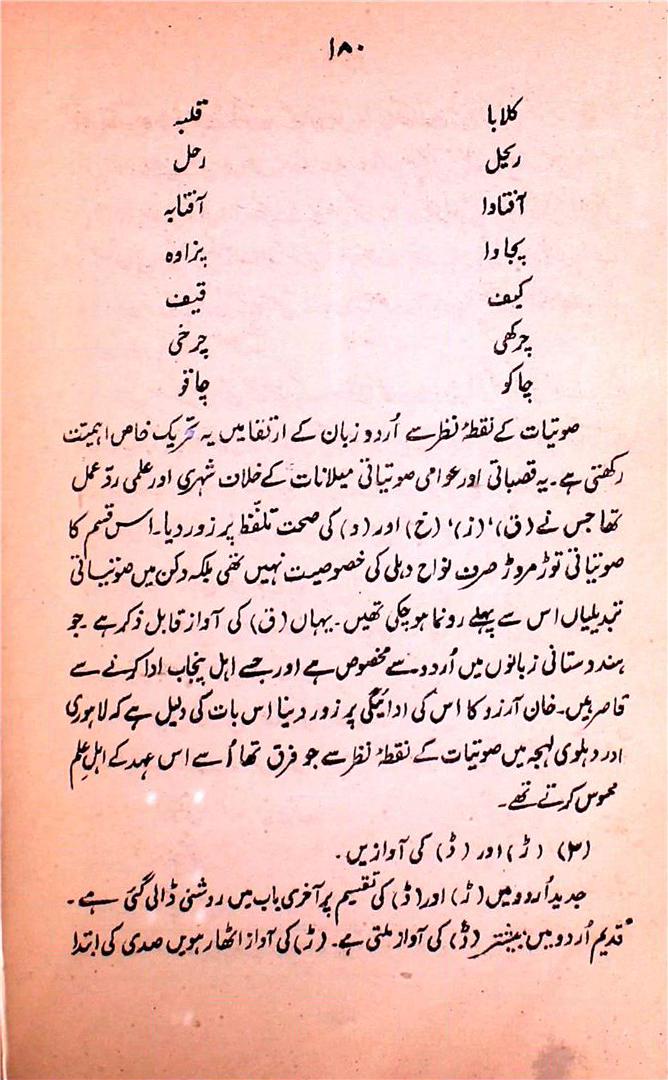 ۱۸۰
کلابا قلبہ
رکیل رحل
آفتادا آفتابہ
پجاوا پزاوہ
کیف قیف
چرکھی چرخی
چاکو چاقو
صوتیات کے نقطۂ نظر سے اُردو زبان کے ارتقا میں یہ تحریک خاص اہمیت
رکھتی ہے۔ یہ قصباتی اور عوامی صوتیاتی میلانات کے خلاف شہری اور علمی ردّ عمل
تھا جس نے (ق)، (ز)، (خ) اور (و) کی صحت تلفّظ پر زور دیا۔ اس قسم کا
صوتیاتی توڑ مروڑ صرف نواح دہلی کی خصوصیت نہیں تھی بلکہ دکن میں صوتیاتی
تبدیلیاں اس سے پہلے رونما ہو چکی تھیں۔ یہاں (ق) کی آواز قابل ذکر ہے جو
ہندوستانی زبانوں میں اُردو سے مخصوص ہے اور جسے اہل پنجاب ادا کرنے سے
قاصر ہیں۔ خان آرزو کا اس کی ادائیگی پر زور دینا اس بات کی دلیل ہے کہ لاہوری
اور دہلوی لہجہ میں صوتیات کے نقطۂ نظر سے جو فرق تھا اُسے اس عہد کے اہل علم
محسوس کرتے تھے۔
(۳) (ڑ) اور (ڈ) کی آوازیں۔
جدید اُردو میں (ڑ) اور (ڈ) کی تقسیم پر آخری باب میں روشنی ڈالی گئی ہے۔
قدیم اُردو میں بیشتر (ڈ) کی آواز ملتی ہے۔ (ڑ) کی آواز اٹھارہویں صدی کی ابتدا